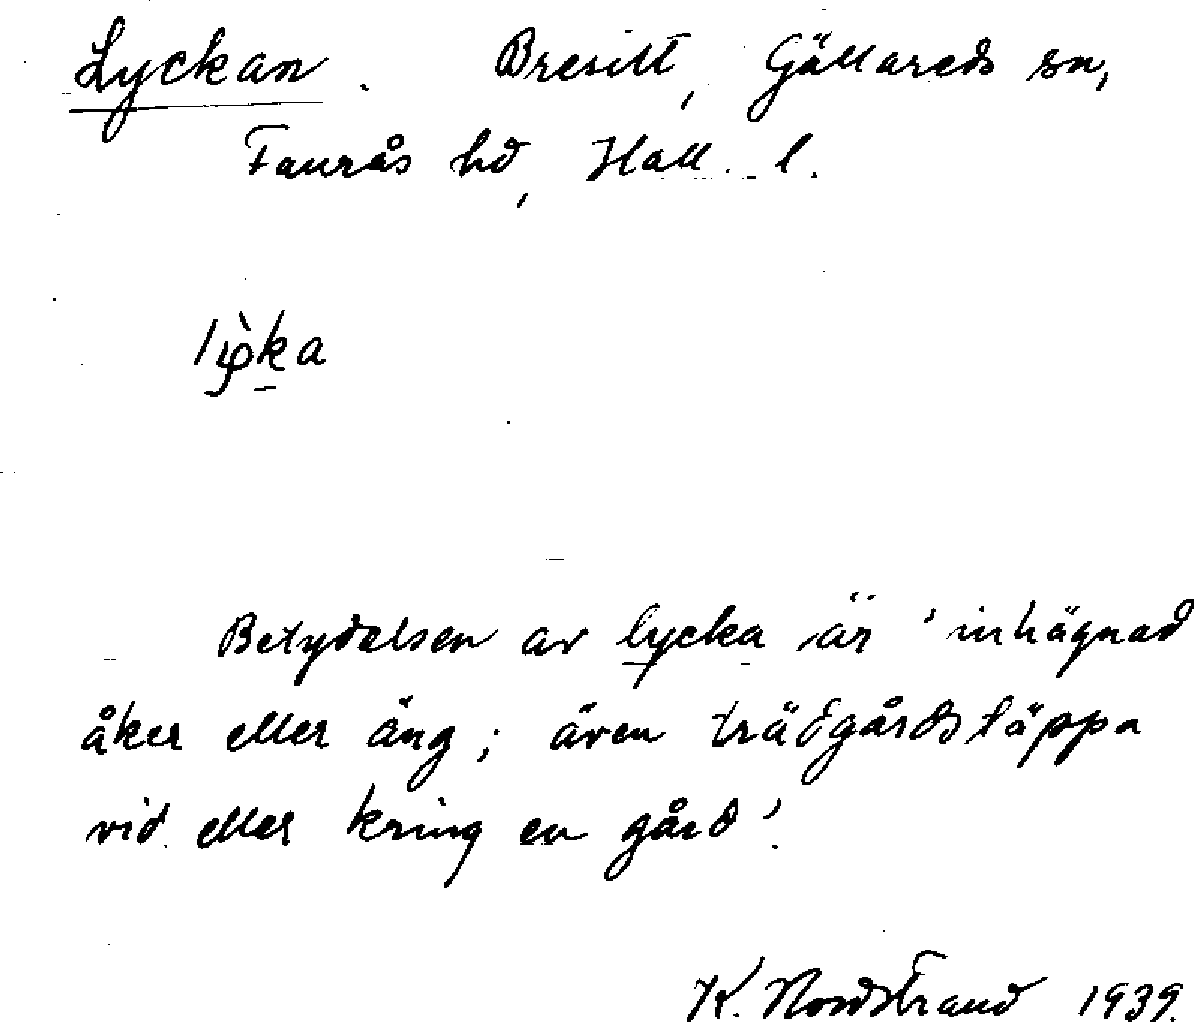 Lyckan. Bresilt, Gällareds sn,
Faurås hd, Hall. l.
lyka
Betydelsen av lycka är 'inhägnad
åker eller äng; även trädgårdstäppa
vid eller kring en gård'.
K. Nordstrand 1939.